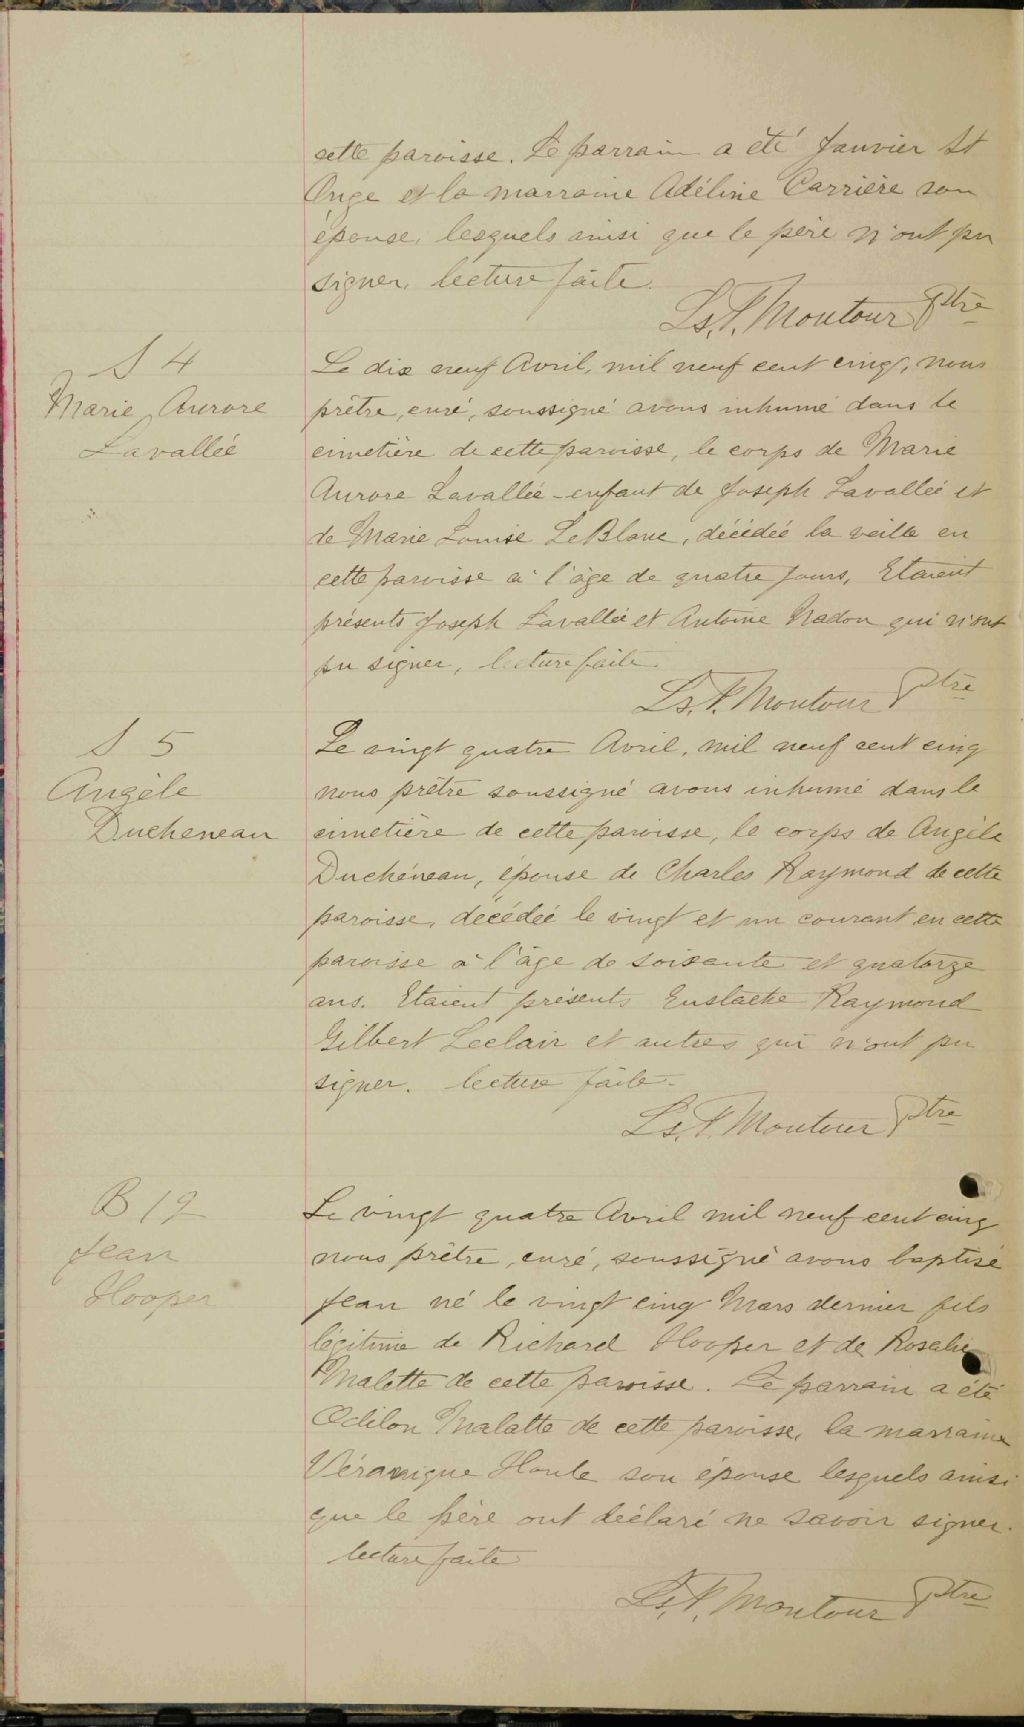 cette paroisse. Le parrain a été Janvier St
Onge et la marraine Adéline Carrière son
épouse, lesquels ainsi que le père n'ont pu
signer, lecture faite.
Ls. P. Montour Ptre
S 4
Marie Aurore
Lavallée
Le dix neuf Avril, mil neuf cent cinq, nous
prêtre, curé, soussigné avons inhumé dans le
cimetière de cette paroisse, le corps de Marie
Aurore Lavallée - enfant de Joseph Lavallée et
de Marie Louise LeBlanc, décédée la veille en
cette paroisse à l'âge de quatre jours, Etaient
présents Joseph Lavallée et Antoine Nadon qui n'ont
pu signer, lecture faite.
Ls. P. Montour Ptre
S 5
Angèle
Ducheneau
Le vingt quatre Avril, mil neuf cent cinq
nous prêtre soussigné avons inhumé dans le
cimetière de cette paroisse, le corps de Angèle
Duchéneau, épouse de Charles Raymond de cette
paroisse, décédée le vingt et un courant en cette
paroisse à l'âge de soixante et quatorze
ans. Etaient présents Eustache Raymond
Gilbert Leclair et autres qui n'ont pu
signer. lecture faite -
Ls. P. Montour Ptre
B 12
Jean
Hooper
Le vingt quatre Avril mil neuf cent cinq
nous prêtre, curé, soussigné avons baptisé
Jean né le vingt cinq Mars dernier fils
légitime de Richard Hooper et de Rosalie
Malette de cette paroisse. Le parrain a été
Odilon Malatte de cette paroisse, la marraine
Véronique Houle son épouse lesquels ainsi
que le père ont déclaré ne savoir signer.
lecture faite
Ls. P. Montour Ptre